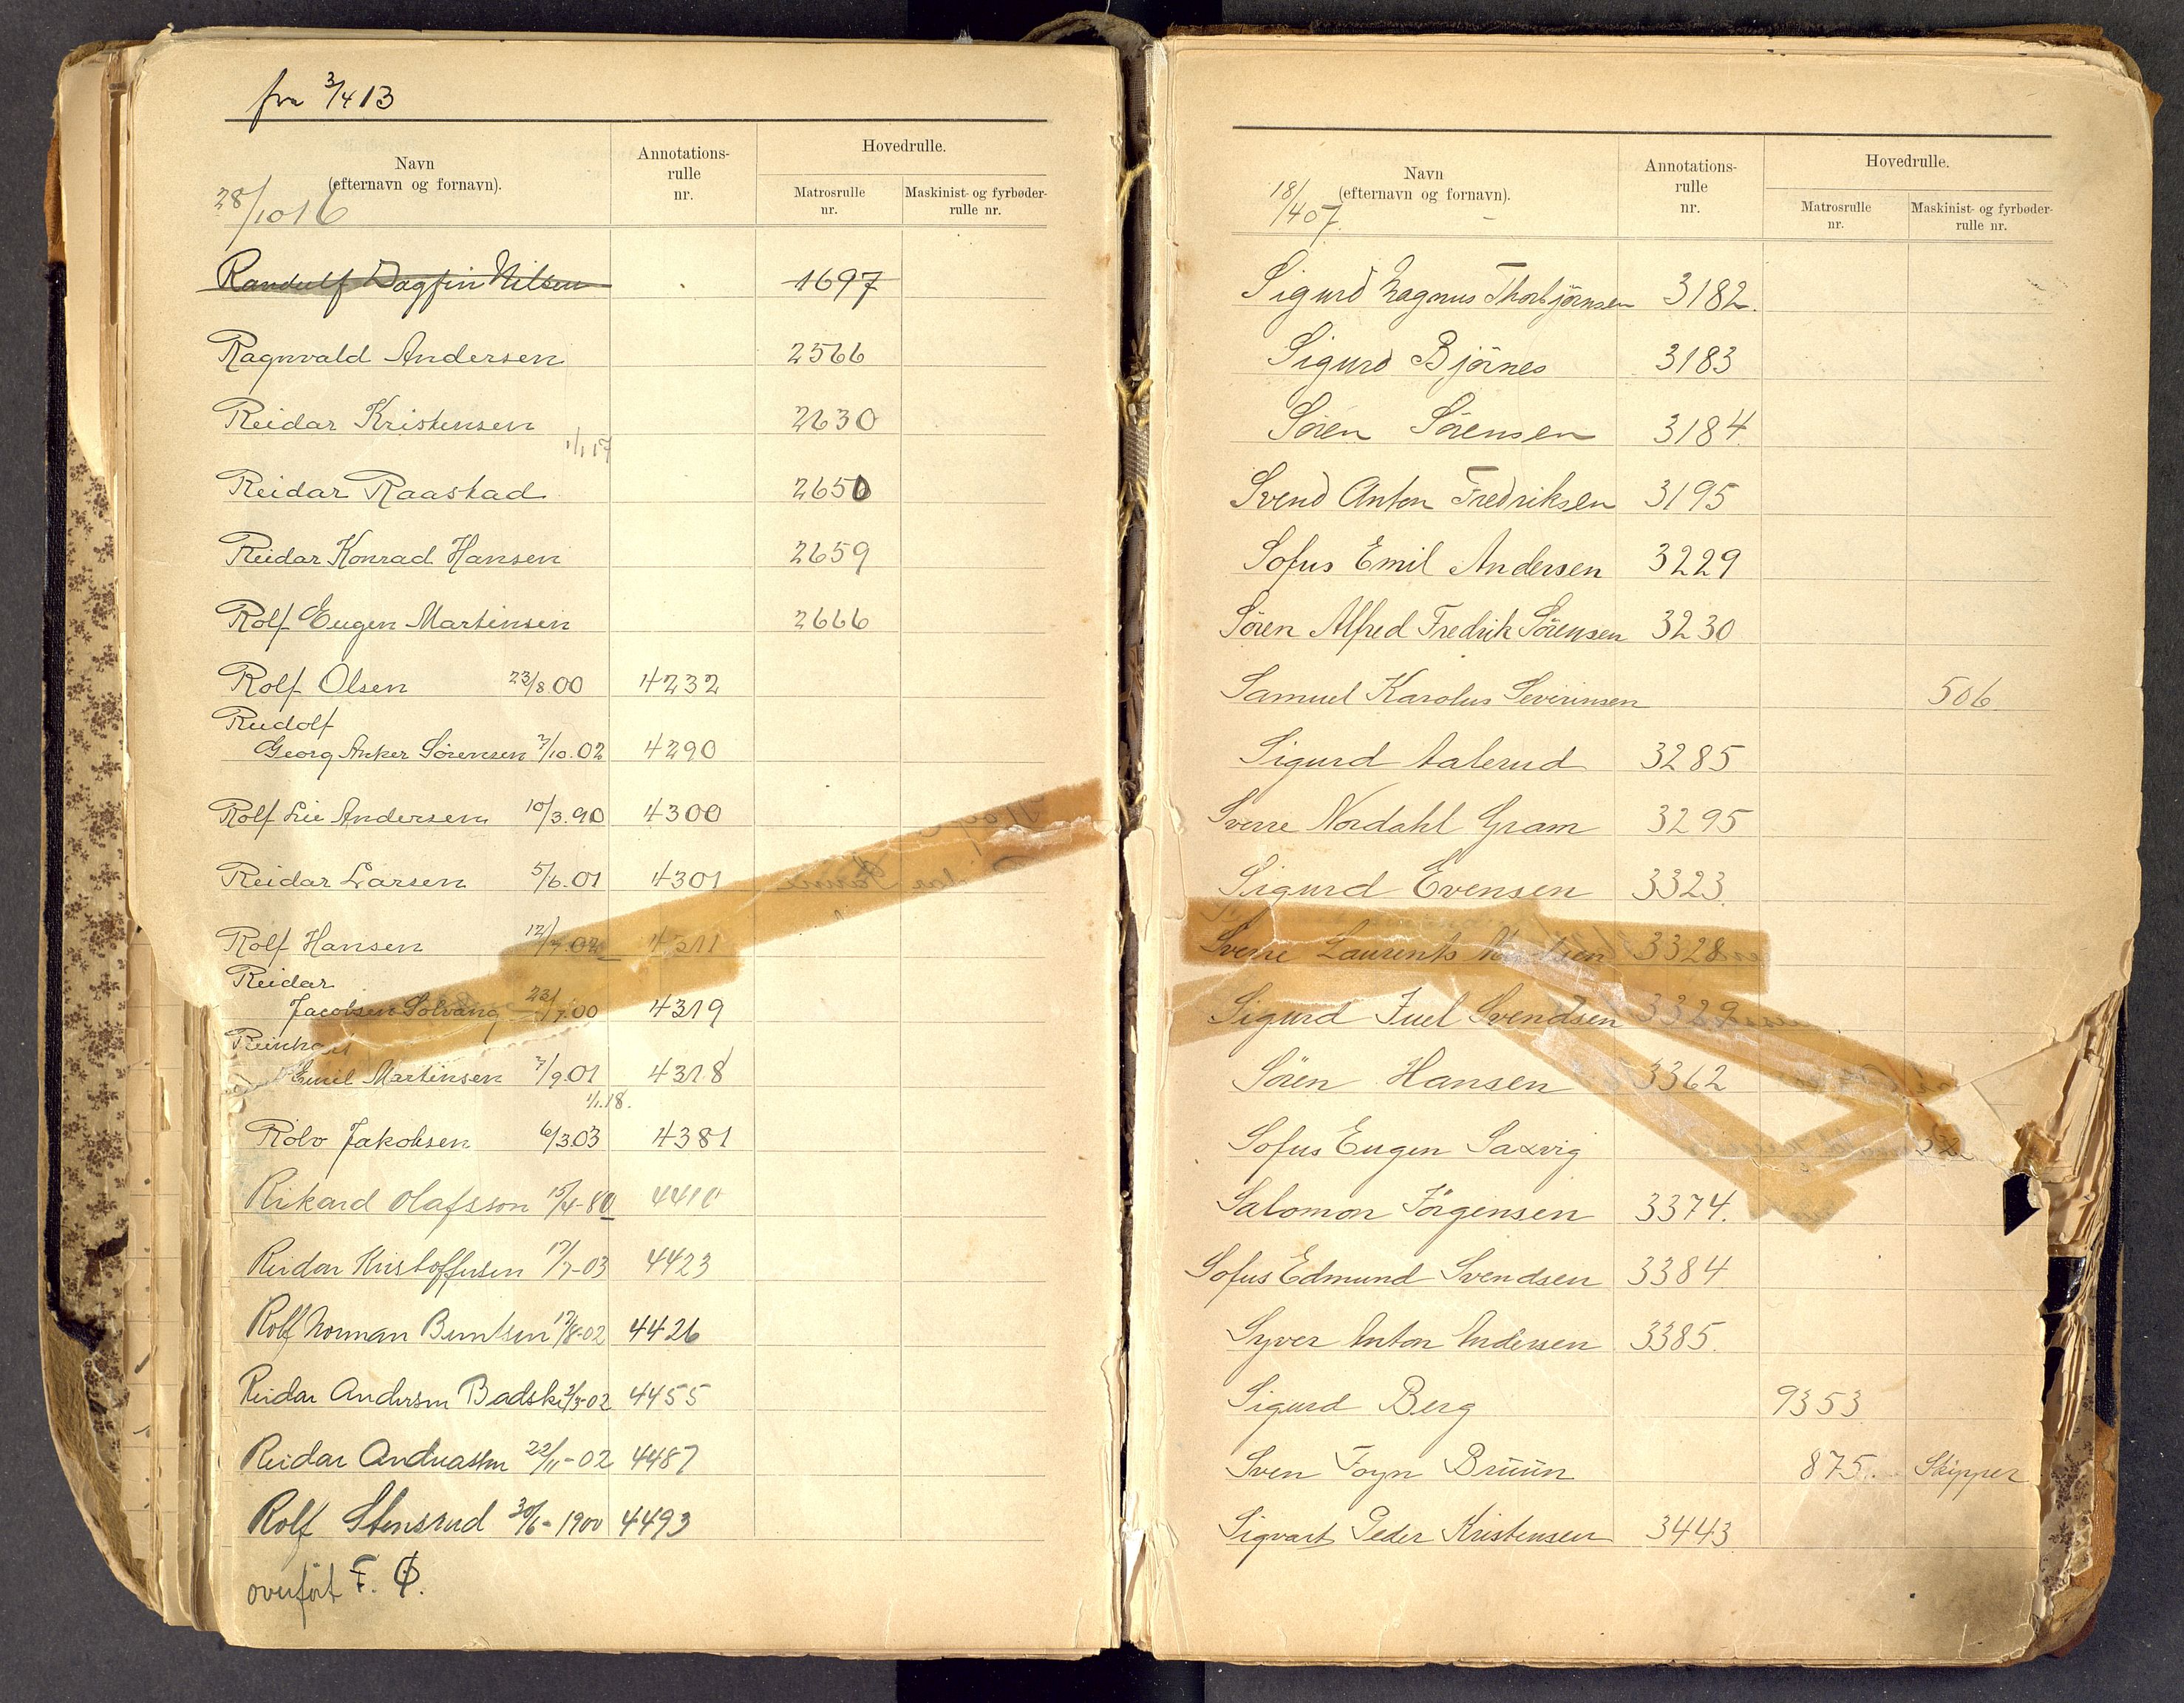 fra 3/4 13
Navn
(efternavn og fornavn).
Annotations-
rulle
nr.
Hovedrulle.
Matrosrulle
nr.
Maskinist- og fyrbøder-
rulle nr.
28/10 16
Randulf Dagfin Nilsen 1697
Ragnvald Andersen 2566
Reidar Kristensen 2630
1/1 17
Reidar Raastad 2650
Reidar Konrad Hansen 2659
Rolf Eugen Martinsen 2666
Rolf Olsen 23/8.00 4232
Rudolf
Georg Anker Sörensen 7/10.02 4290
Rolf Lie Andersen 10/3.90 4300
Reidar Larsen 5/6.01 4301
Rolf Hansen 12/7.02 4311
Reidar
Jacobsen Solvang 23/7.00 4319
Reinhart
Emil Martinsen 7/9.01 4318
1/1.18.
Rolv Jakobsen 6/3.03 4381
Rikard Olafsson 15/4-80 4410
Reidar Kristoffersen 17/7-03 4423
Rolf Norman Berntsen 17/8-02 4426
Reidar Andersen Badski 3/3-02 4455
Reidar Andreassen 22/11-02 4487
Rolf Stensrud 30/6-1900 4493
overført F. Ø.
Navn
(efternavn og fornavn).
Annotations-
rulle
nr.
Hovedrulle.
Matrosrulle
nr.
Maskinist- og fyrbøder-
rulle nr.
18/4 07.
Sigurd Magnus Thorbjörnsen 3182.
Sigurd Björnes 3183
Sören Sörensen 3184
Svend Anton Fredriksen 3195
Sofus Emil Andersen 3229
Sören Alfred Fredrik Sörensen 3230
Samuel Karolus Severinsen 506
Sigurd Aalerud 3285
Sverre Nordahl Gram 3295
Sigurd Evensen 3323.
Sverre Laurents 3328
Sigurd Juel Svendsen 3329
Sören Hansen 3362
Sofus Eugen Saxvig
Salomon Jörgensen 3374.
Sofus Edmund Svendsen 3384
Syver Anton Andersen 3385.
Sigurd Berg 9353
Sven Foyn Bruun 875. Skipper
Sigvart Peder Kristensen 3443